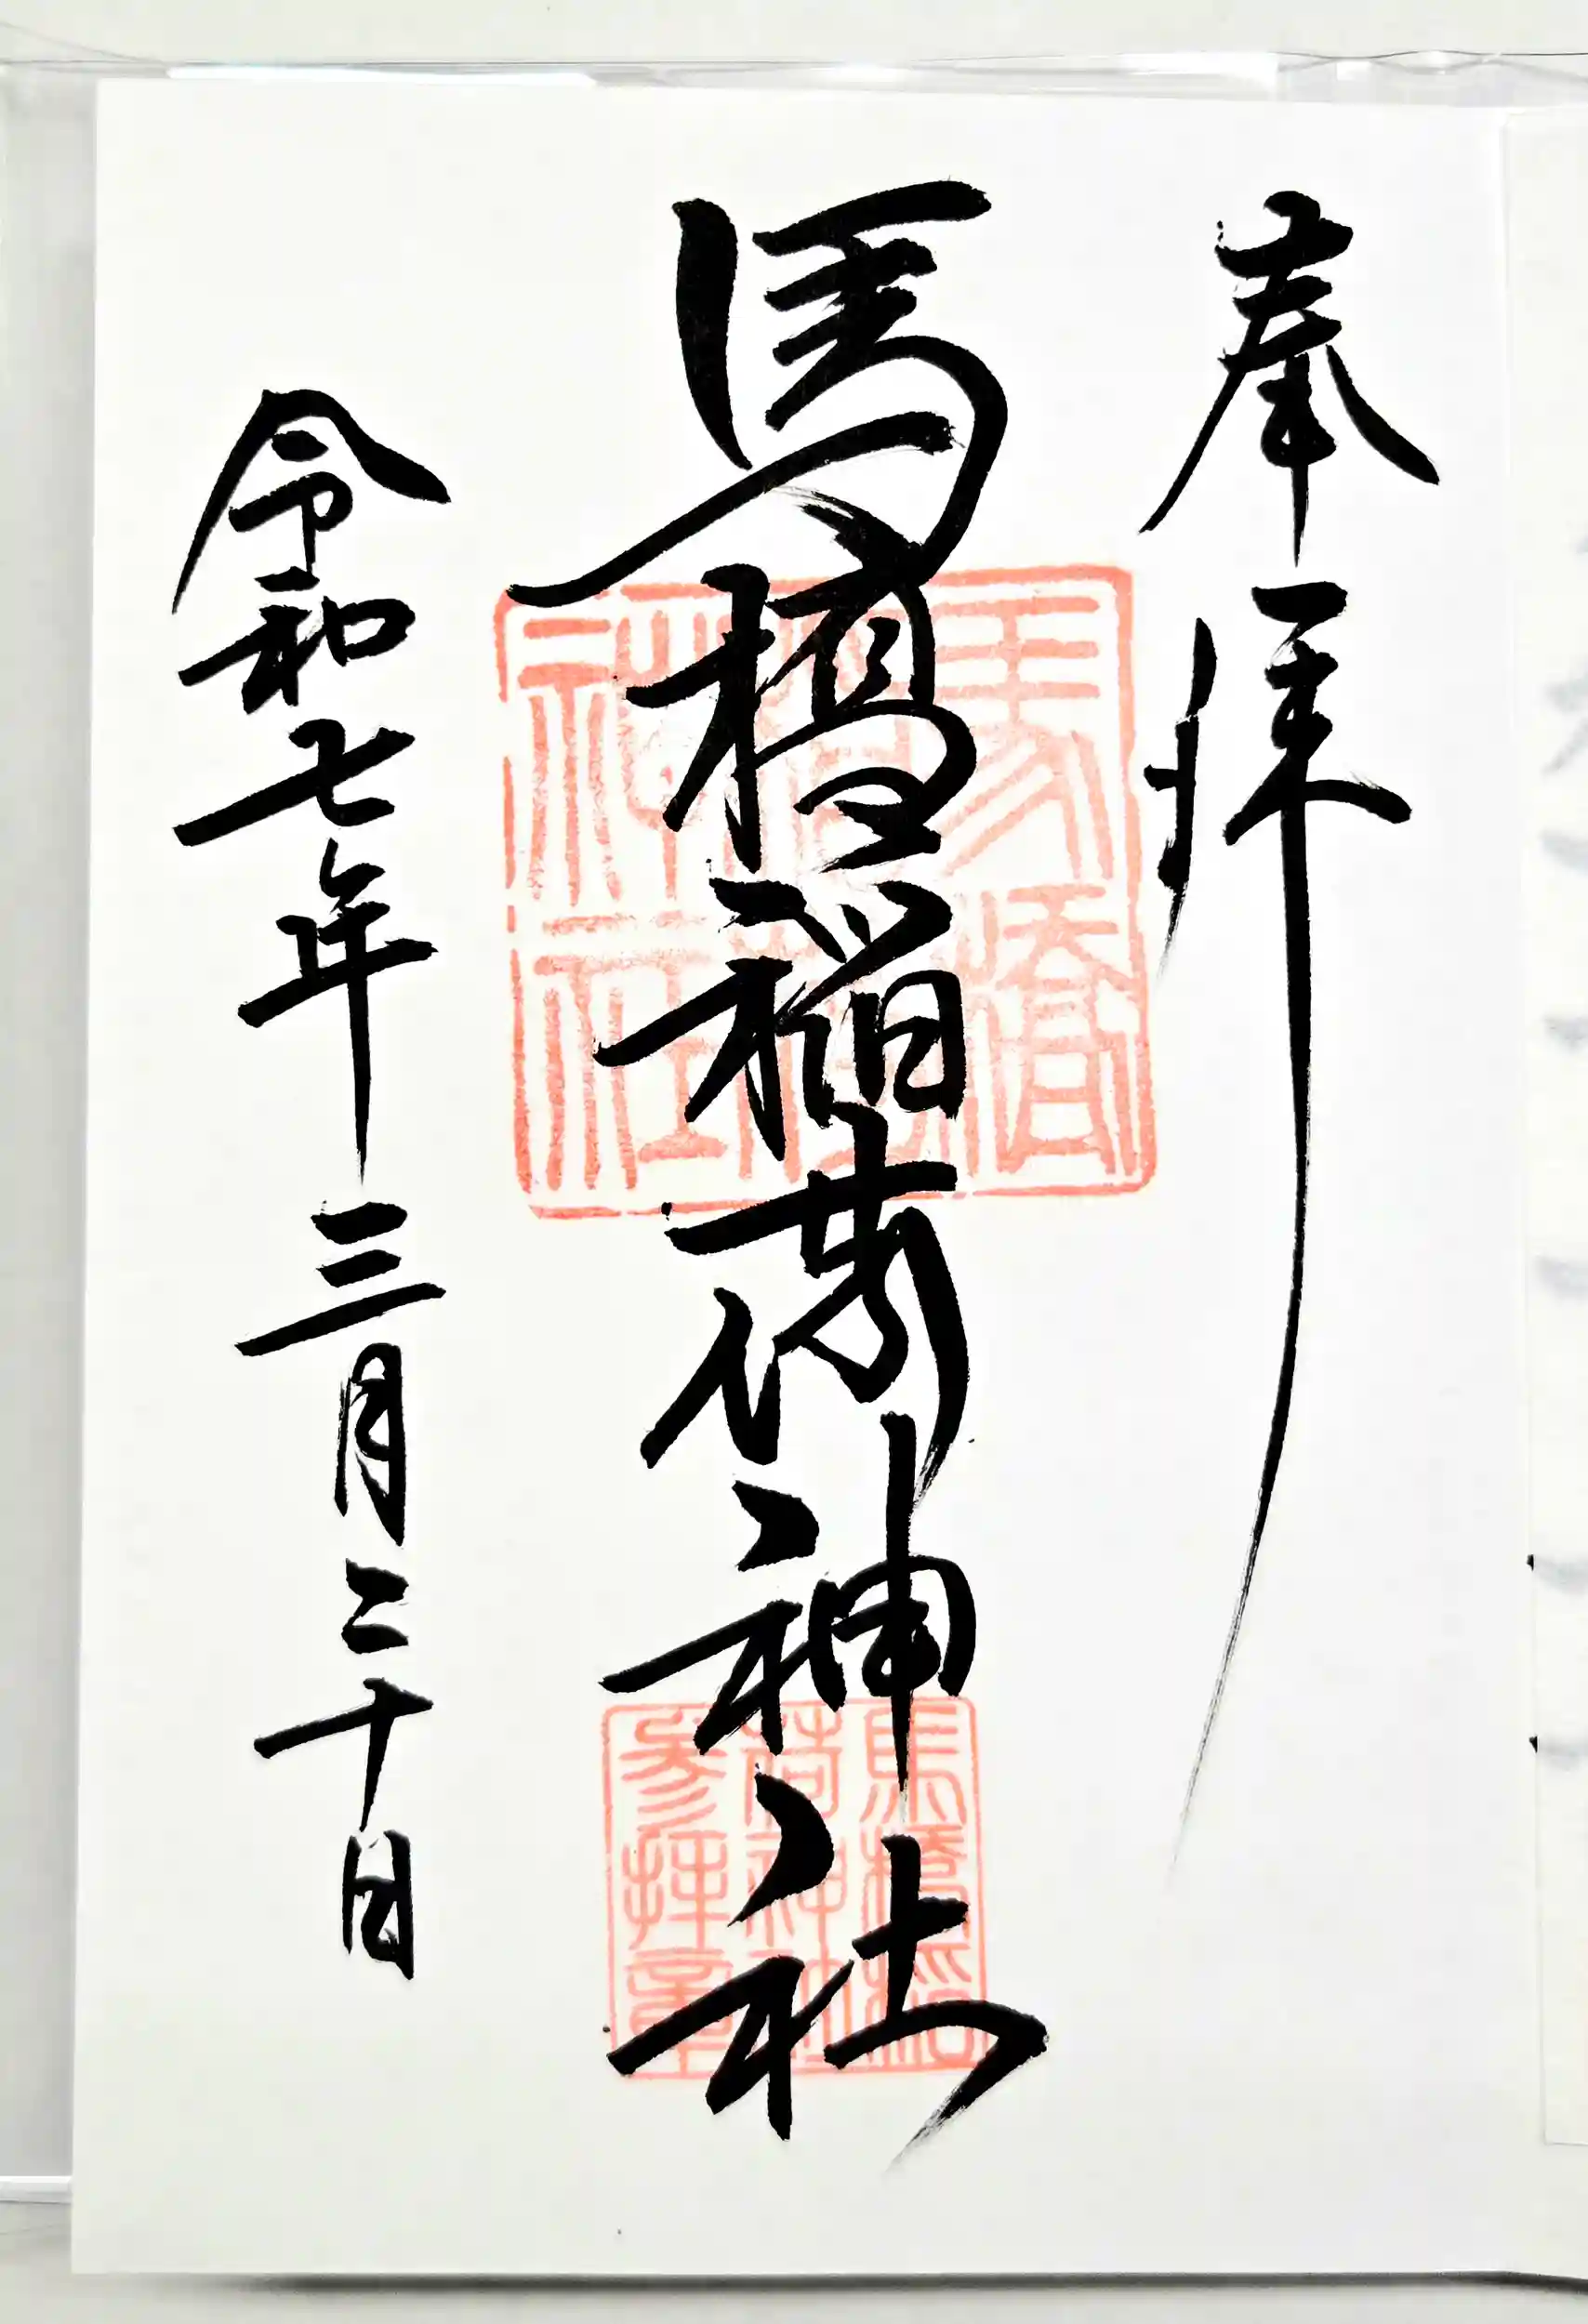 奉拝
馬橋稲荷神社
令和七年三月二十日
馬橋稲荷神社
馬橋稲荷神社参拝章